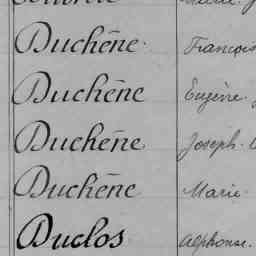 Duchêne. François
Duchêne Eugène.
Duchêne Joseph.
Duchêne Marie.
Duclos Alphonse.